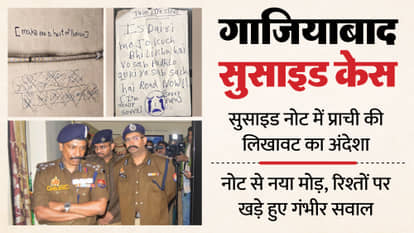 [make me a hut of Flower]
Is Dairy
me Jo kuch
Bhi Likha hai
vo sab Padhlo
kyuki vo sab sach
hai Read Now!!
I'm
really
sorry!
गाजियाबाद
सुसाइड केस
सुसाइड नोट में प्राची की
लिखावट का अंदेशा
नोट से नया मोड़, रिश्तों पर
खड़े हुए गंभीर सवाल